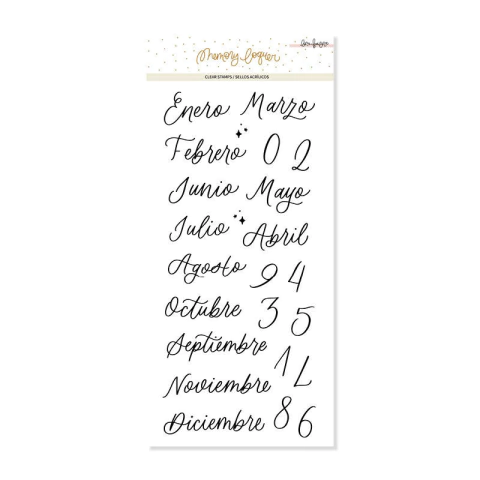 Memory loquer
CLEAR STAMPS / SELLOS ACRÍLICOS
Enero Marzo
Febrero 0 2
Junio Mayo
Julio Abril
Agosto 9 4
Octubre 3 5
Septiembre
1 L
Noviembre
Diciembre 8 6